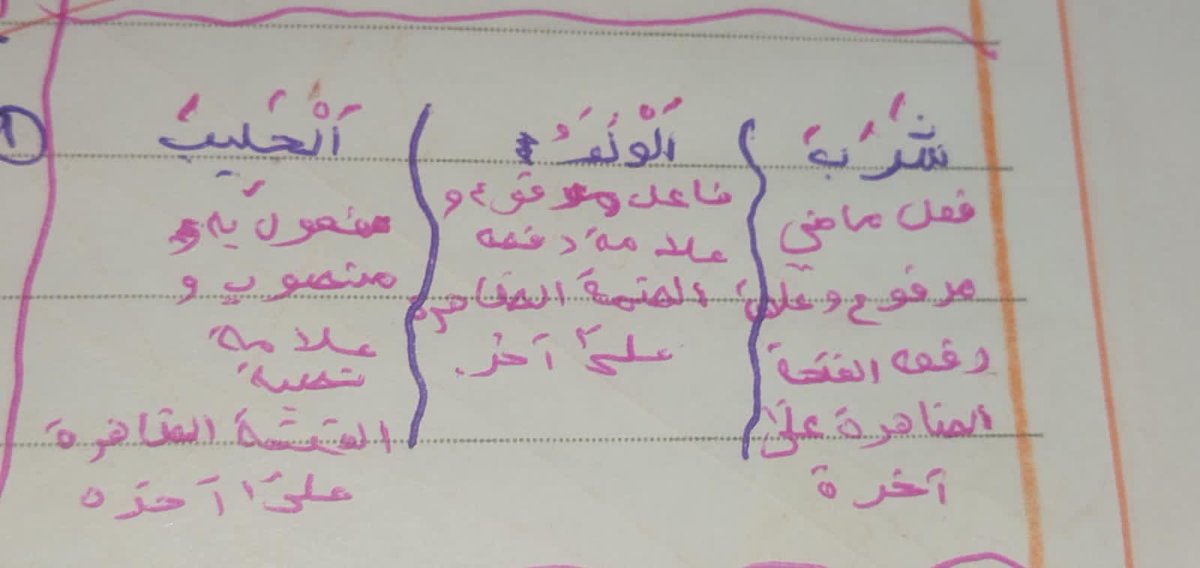 شَرَبَ
فعل ماضي
مرفوع وعلامة
رفعه الفتحة
الضاهرة علىَ
آخرة
اَلْوَلَدُ
فاعل مرفوع و
علامة رفعه
الضمة الضاهرة
علىَ آخر.
اَلْحَليبَ
مفعول به و
منصوب و
علامة
نصبة
الفتحة الضاهرة
علىَ آخره